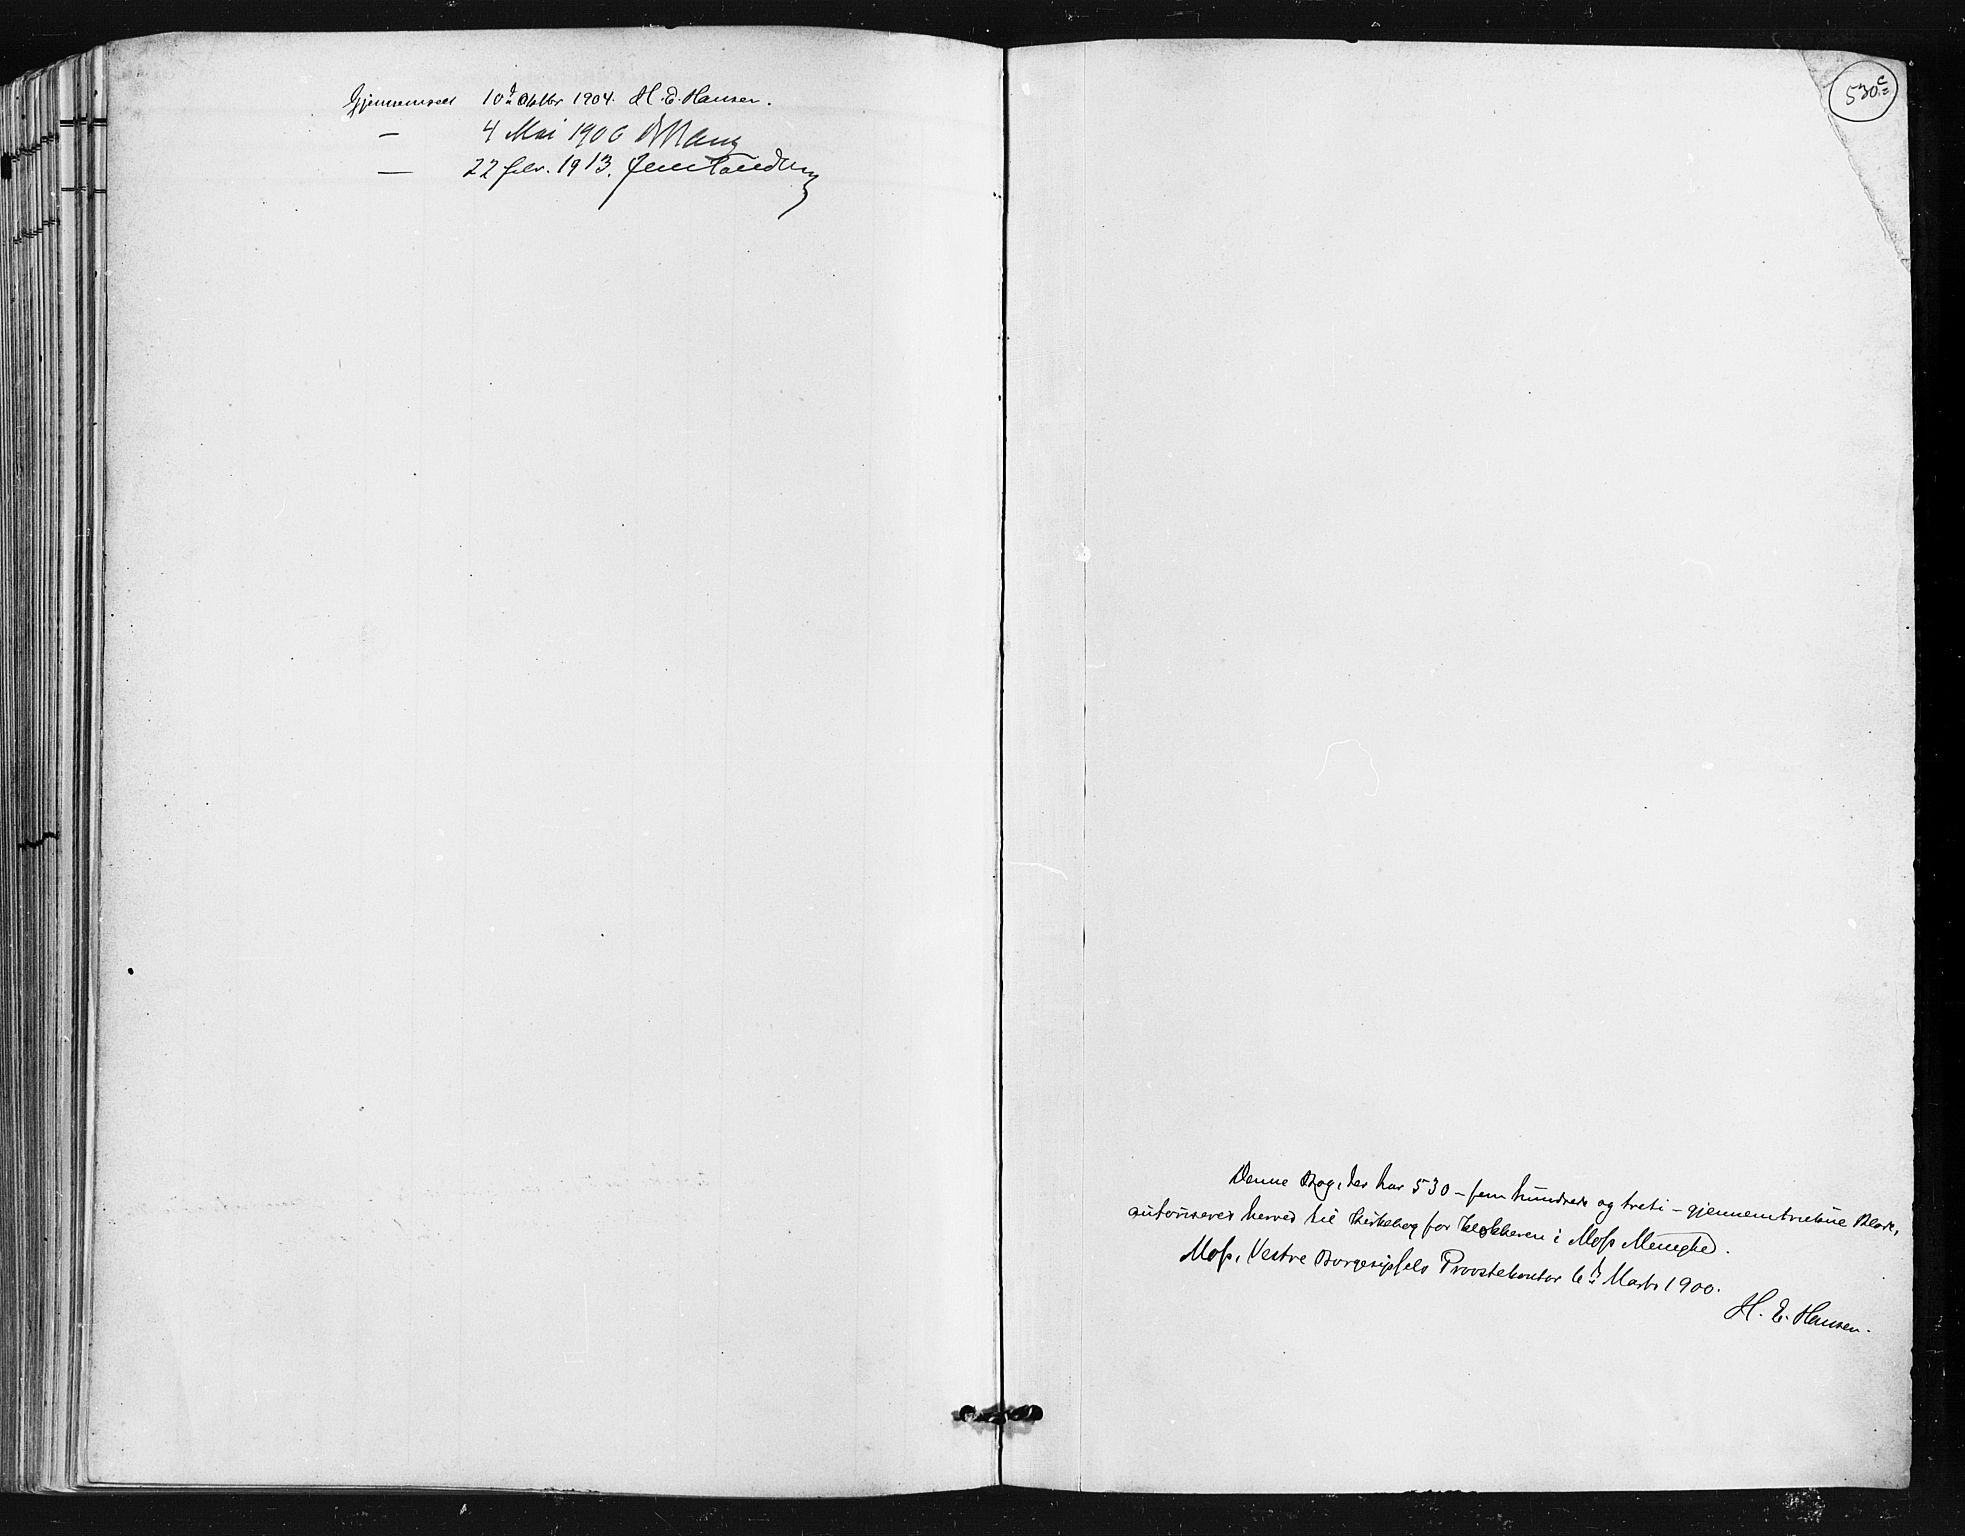 Gjennemseet 10de Oktbr 1904. H. E. Hansen.
— 4 Mai 1906
— 22 febr. 1913.
530
Denne Bog, der har 530 – fem hundrede og treti – gjennemtrukne Blade,
autoriseres herved til Kirkebog for Klokkeren i Moss Menighed.
Moss, Vestre Borgesyssels Provstekontor 6te Marts 1900.
H. E. Hansen.